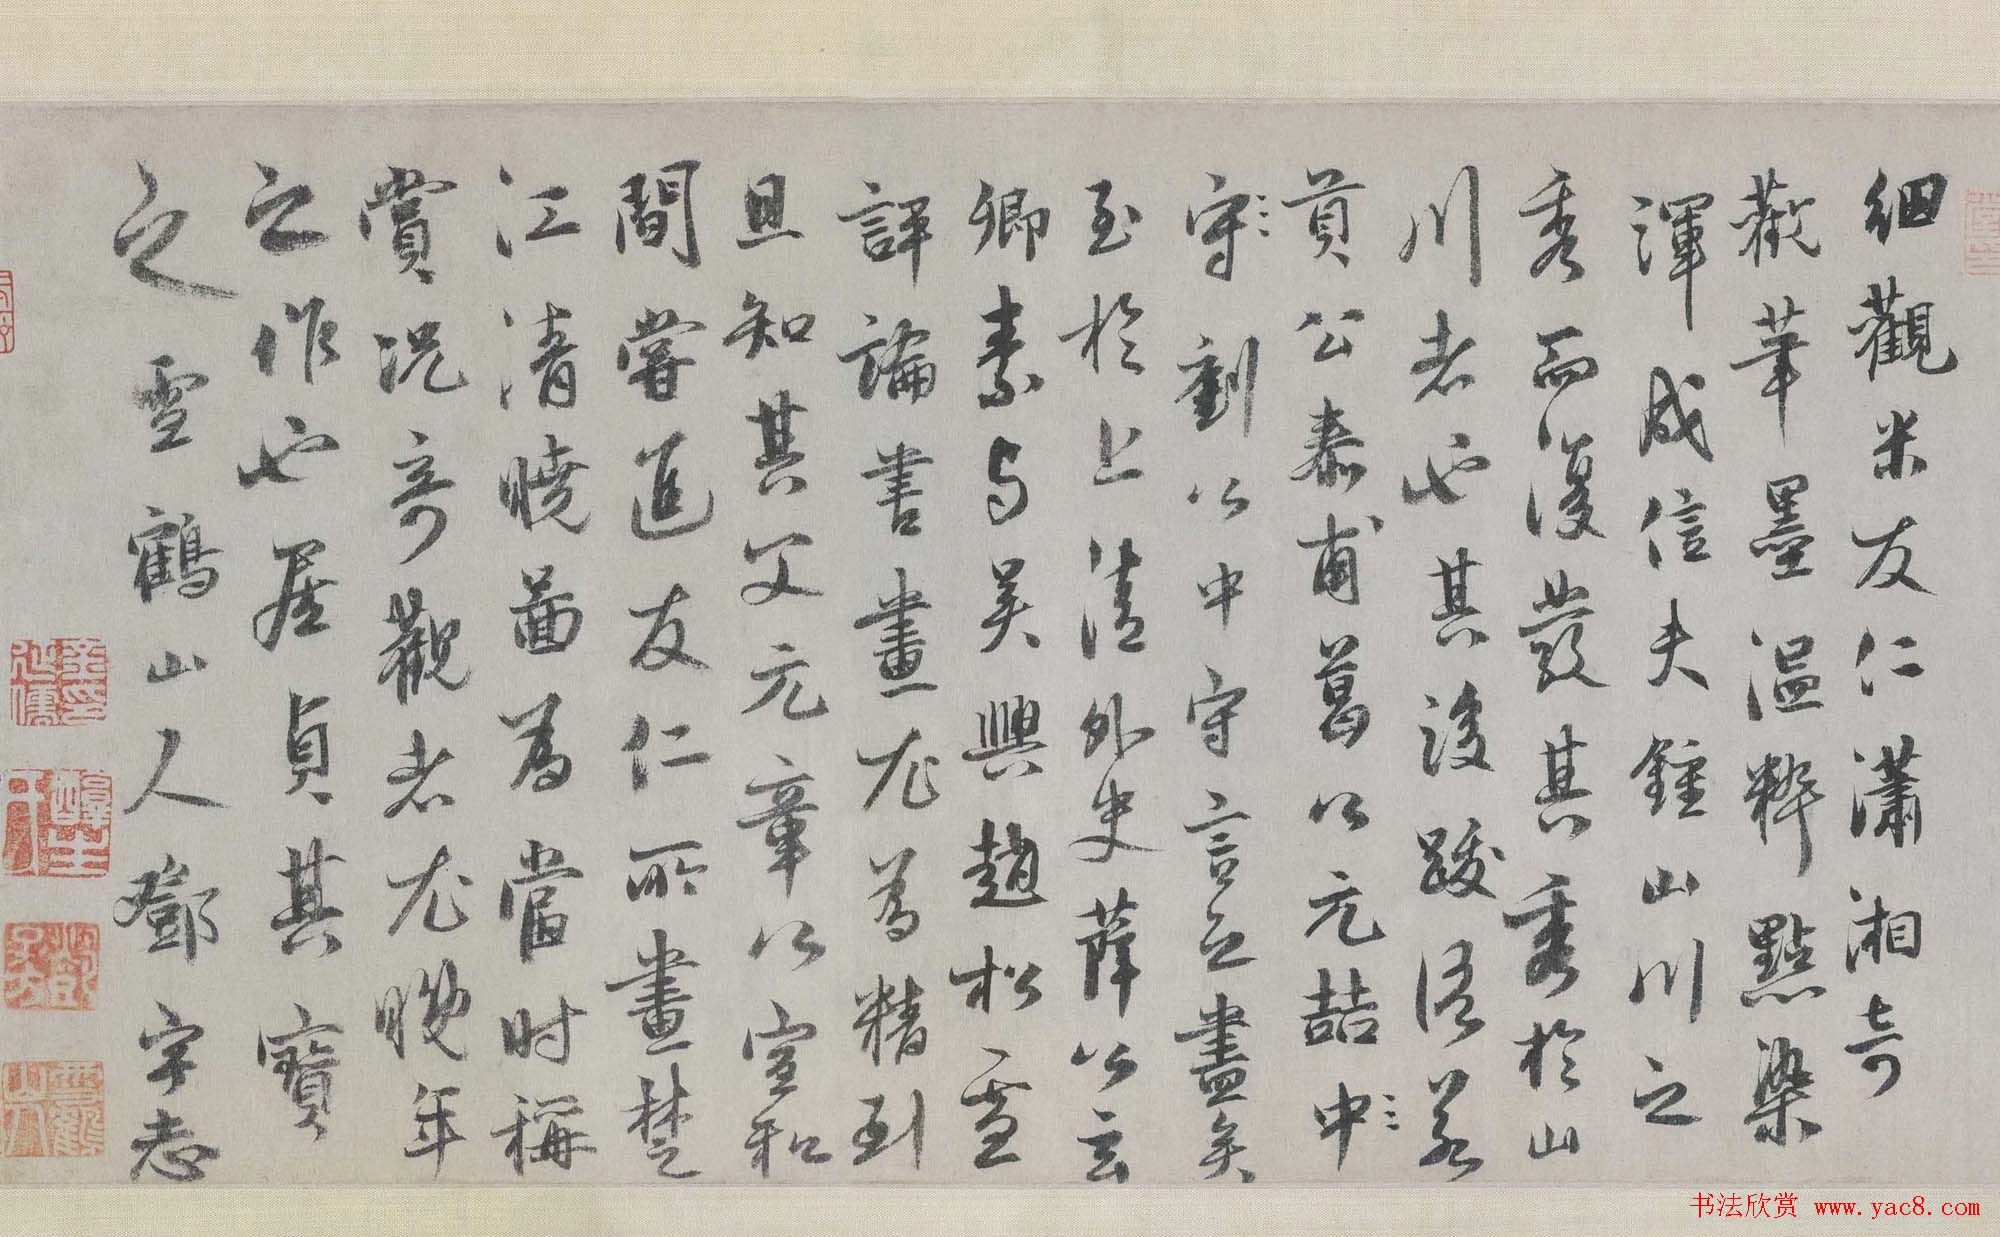 細觀米友仁瀟湘奇
觀筆墨溫粹點染
渾成信夫鍾山川之
秀而復發其秀於山
川者也其後跋語若
貢公泰甫葛公元喆中
守劉公中守言之盡矣
至於上清外史薛公玄
卿素与吳興趙松雪
評論書畫尤為精到
且知其父元章公宣和
間嘗進友仁所畫楚
江清曉圖為當时稱
賞況奇觀者尤晚年
之作也居貞其寶
之雲鶴山人鄧宇志
书法欣赏 www.yac8.com